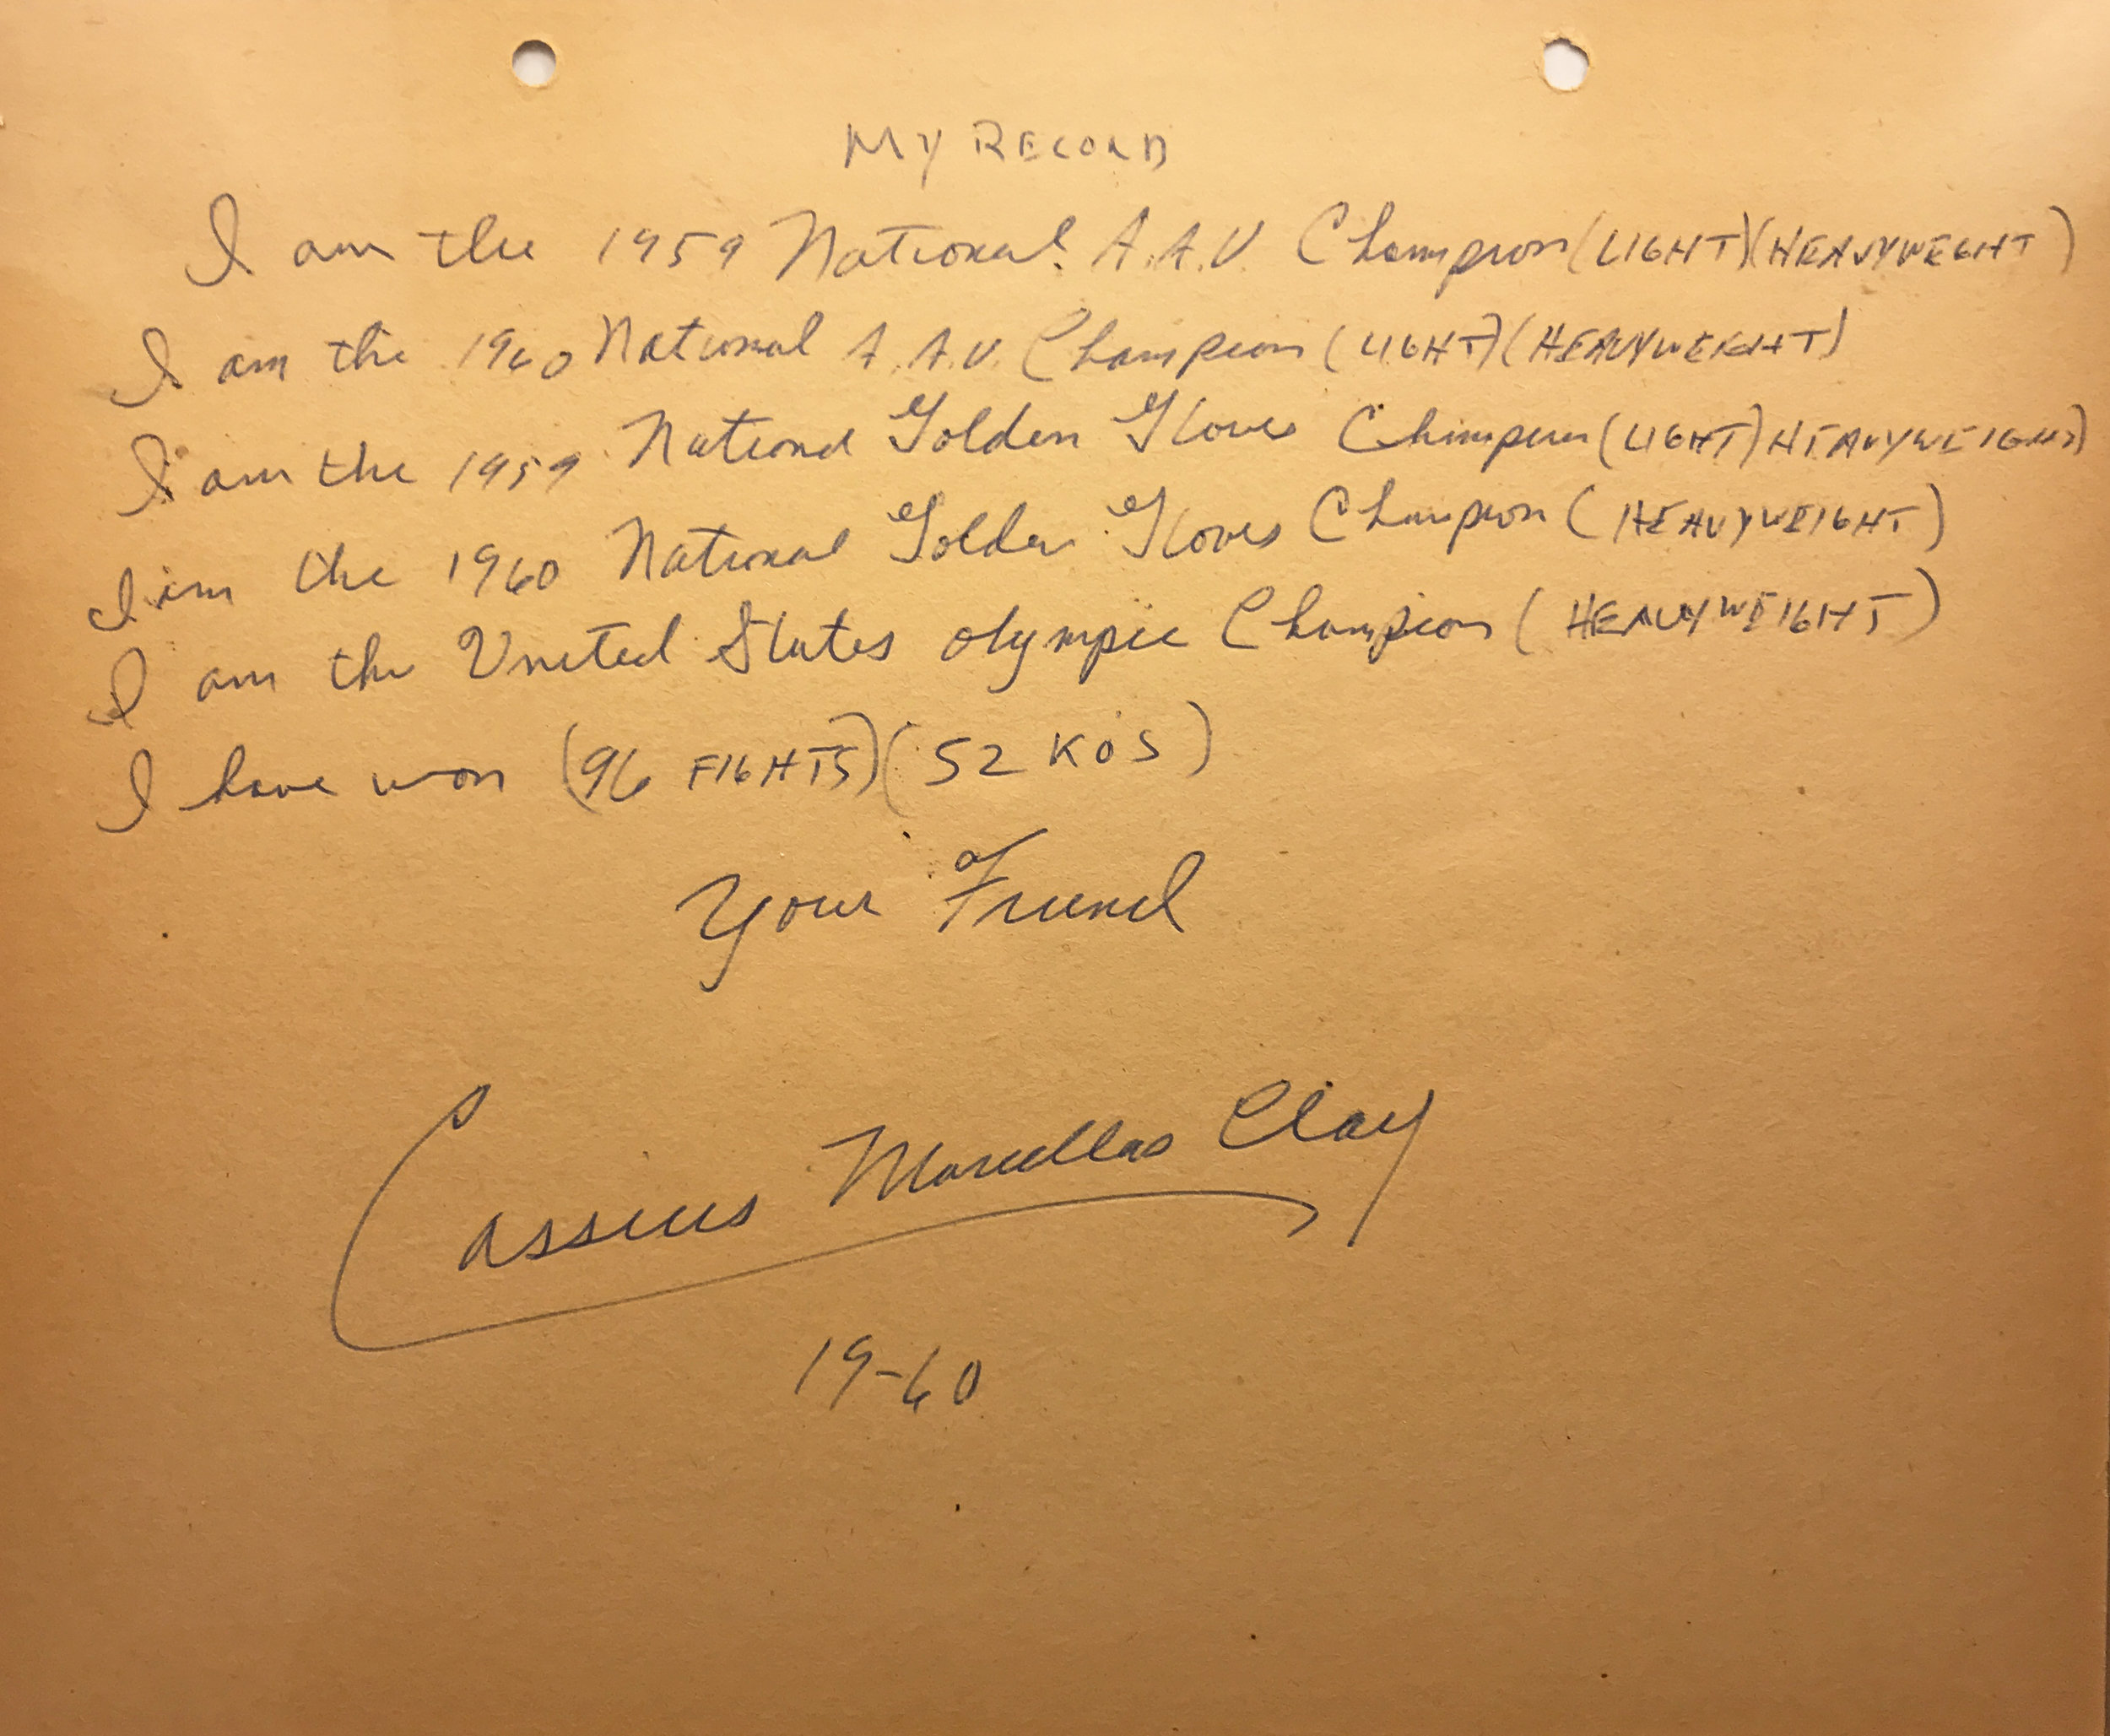 MY RECORD
I am the 1959 National A.A.U. Champion (LIGHT)(HEAVYWEGHT)
I am the 1960 National A.A.U. Champion (LIGHT)(HEAVYWEIGHT)
I am the 1959 National Golden Gloves Champion (LIGHT) HEAVYWEIGHT)
I am the 1960 National Golden Gloves Champion (HEAVYWEIGHT)
I am the United States Olympic Champion (HEAVYWEIGHT)
I have won (96 FIGHTS) (52 KOS)
Your Friend
Cassius Marcellus Clay
19-60